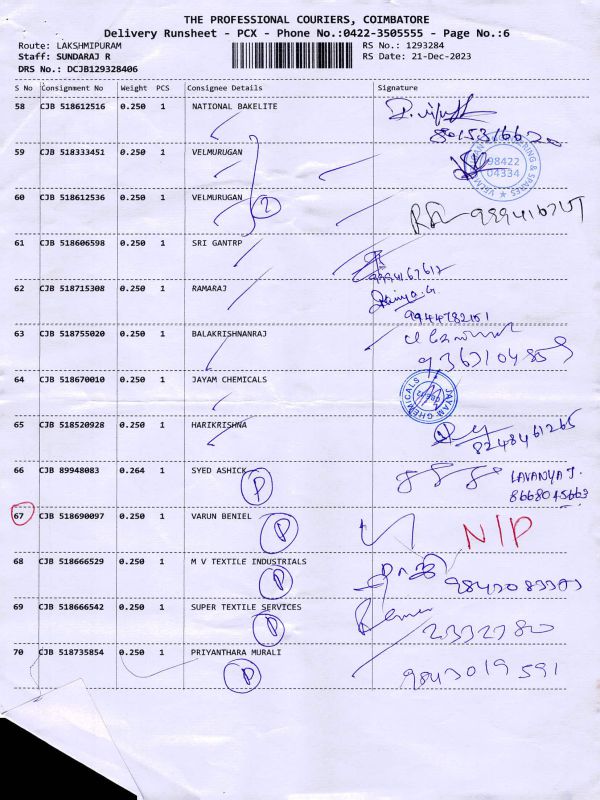 THE PROFESSIONAL COURIERS, COIMBATORE
Delivery Runsheet - PCX - Phone No.:0422-3505555 - Page No.:6
Route: LAKSHMIPURAM RS No.: 1293284
Staff: SUNDARAJ R RS Date: 21-Dec-2023
DRS No.: DCJB129328406
S No Consignment No Weight PCS Consignee Details Signature
58 CJB 518612516 0.250 1 NATIONAL BAKELITE
8015316620
59 CJB 518333451 0.250 1 VELMURUGAN
98422
04334
60 CJB 518612536 0.250 1 VELMURUGAN
2
61 CJB 518606598 0.250 1 SRI GANTRP
9994167617
62 CJB 518715308 0.250 1 RAMARAJ
9944782151
63 CJB 518755020 0.250 1 BALAKRISHNANRAJ
9367104859
64 CJB 518670010 0.250 1 JAYAM CHEMICALS
JAYAM CHEMICALS
65 CJB 518520928 0.250 1 HARIKRISHNA
8248461265
66 CJB 89948083 0.264 1 SYED ASHICK P
LAVANYA J.
8668045663
67 CJB 518690097 0.250 1 VARUN BENIEL P N/P
68 CJB 518666529 0.250 1 M V TEXTILE INDUSTRIALS
P
69 CJB 518666542 0.250 1 SUPER TEXTILE SERVICES
P 2332780
70 CJB 518735854 0.250 1 PRIYANTHARA MURALI
P 9843019591